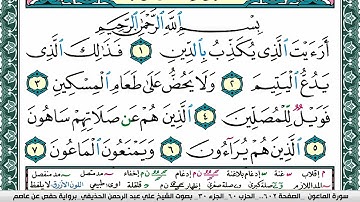 بِسْمِ اللَّهِ الرَّحْمَٰنِ الرَّحِيمِ
أَرَءَيْتَ الَّذِى يُكَذِّبُ بِالدِّينِ ١ فَذَٰلِكَ الَّذِى
يَدُعُّ الْيَتِيمَ ٢ وَلَا يَحُضُّ عَلَىٰ طَعَامِ الْمِسْكِينِ ٣
فَوَيْلٌ لِّلْمُصَلِّينَ ٤ الَّذِينَ هُمْ عَن صَلَاتِهِمْ سَاهُونَ
٥ الَّذِينَ هُمْ يُرَآءُونَ ٦ وَيَمْنَعُونَ الْمَاعُونَ ٧
سورة الماعون الصفحة ٦٠٢ الحزب ٦٠ الجزء ٣٠ بصوت الشيخ علي عبد الرحمن الحذيفي برواية حفص عن عاصم